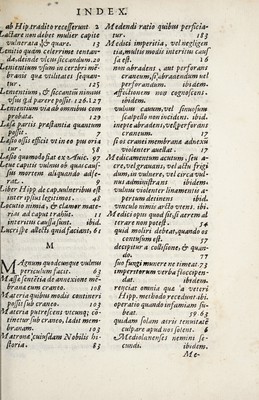 INDEX.
ab Hip. tradito recesserunt 2
Lactare non debet mulier capite
vulnerata, & quare.
Lentio quam celerrime tentan-
da, deinde vlcus siccandum. 20
Lentorum vsum in cerebri mē-
branis qua vtilitates sequan-
tur. 125
Lenientium, & siccantiū nimius
vsus qd parere possit. 126.127
Lenientium vsus ab omnibus com
probata. 129
Lesa partis prastantia quantum
possit. 7
Lesio ossis efficit vt in eo pus oria
tur. 58
Lesio quomodo fiat ex Auic. 97
Leue capitis vulnus ob quas cauſ-
sas mortem aliquando affe-
rat. 9
Liber Hipp. de cap. vulneribus est
inter ipsius legitimos. 48
Locutio nimia, & clamor mate-
riā ad caput trahūt. 11
interitus caussa sunt. ibid.
Lucrisse allecti quid faciant. 61
M
MAgnum quodcumque vulnus
periculum facit. 63
Massa sentētia de annexione mē-
brana cum craneo. 108
Materia quibus modis contineri
possit sub craneo. 103
Materia putrescens vtcunq; co-
tinetur sub craneo, ladit mem-
branam. 103
Matrona cuiusdam Nobilis hi-
storia. 83
Medendi ratio quibus perficia-
tur. 183
Medici imperitia, vel negligen
tia, multis modis interitus cauſ
sa est. 16
non abradent, aut perforant
craneum, si abradendum vel
perforandum. ibidem.
affectionem non cognoscens.
ibidem.
vulnus cauum, vel sinuosum
scalpello non incidens. ibid.
inepte abradens, vel perforans
craneum. 17
si os cranei membrana adnexū
violenter auellat. 17
Medicamentum acutum, seu a-
cre, vel grauans, vel actu frigi
dum, in vulnere, vel circa vul-
nus administrans ibidem
vulnus violenter linamentis a-
pertum detinens ibid.
vincula nimis arcte vrens. ibi.
Medici opus quod sit, si aerem al
terare non potest. 54
quid moliri debeat, quando os
contusum est. 37
decipitur a collisione, & quan-
do. 77
suo fungi munere ne timeat 73
imperitorum verba floccipen-
dat. ibidem.
renciat omnia qua a veteri
Hipp. methodo recedunt ibi.
operatio quando infamiam su-
beat. 59.63
quidam solam aeris tenuitatē
culpare apud nos solent. 6
Mediolanenses nemini se-
cundi. ibidem.
Me-